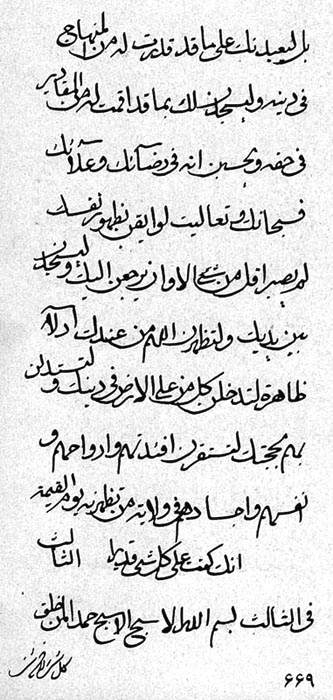 بل ليعبدنك على ما قد قدرت له من المنهاج
في دينه وليسجدن لك بما قد اقمت له من المقادير
في حقه ويحسبن انه في رضائك وعلائك
فسبحانك وتعاليت لو ايقن بظهور نفسك
لم يصبر اقل من شيء الا وان يرجعن اليك وليسجدن
بين يديك ولتظهرن اللهم من عندك ادلاء
ظاهرة لتدخلن كل من على الارض في دينك ولتستدلن
بهم بحجتك لتستقرن افئدتهم وارواحهم و
انفسهم واجسادهم في ولاية من تظهرنه يوم القيمة
انك كنت على كل شيء قديرا الثالث
في الثالث بسم الله الاسبح الاسبح حمد المن خلق
٦٦٩